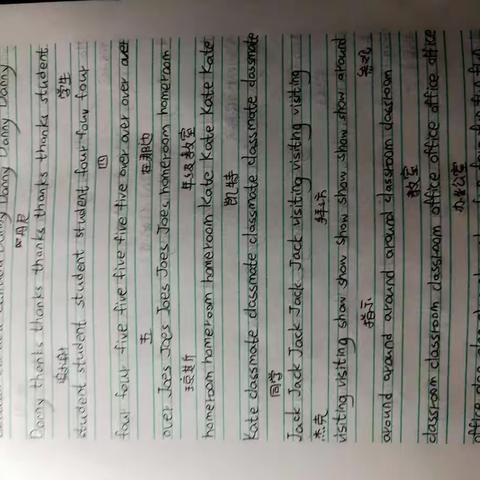 Danny Danny Danny
丹尼
Danny thanks thanks thanks thanks student
学生
student student student four four four
四
four four five five five five over over over
五 在那边
over Joes Joes Joes Joes homeroom
琼斯 年级教室
homeroom homeroom Kate Kate Kate Kate
凯特
Kate classmate classmate classmate classmate
同学
Jack Jack Jack Jack Jack visiting visiting
杰克 拜访
visiting visiting show show show show around
指示 参观
around around around around classroom
教室
classroom classroom office office office office
办公室
office